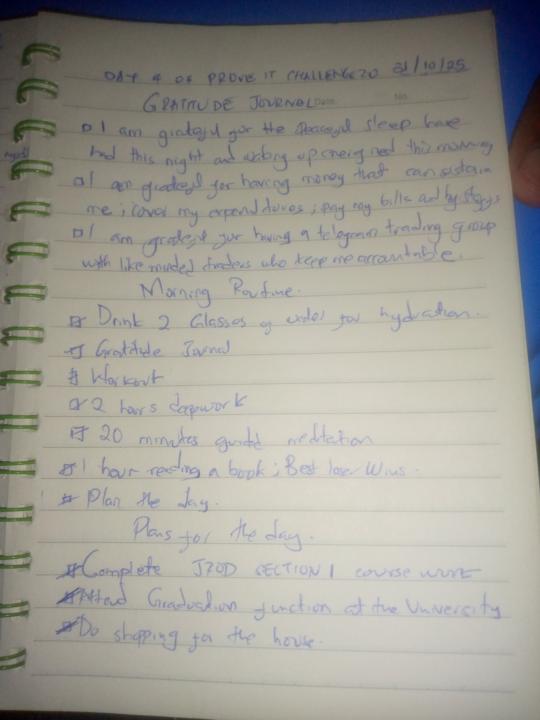 DAY 4 OF PROVE IT CHALLENGE 2.0 31/10/25
GRATITUDE JOURNAL Date No.
I am grateful for the peaceful sleep have
had this night and waking up energised this morning
I am grateful for having money that can sustain
me; cover my expenditures; pay my bills and buy
I am grateful for having a telegram trading group
with like minded traders who keep me accountable.
Morning Routine.
Drink 2 Glasses of water for hydration.
Gratitude Journal
Workout
2 hours deepwork
20 minutes guided meditation
1 hour reading a book; Best loser Wins.
Plan the day.
Plans for the day.
Complete SECTION 1 course work
Attend Graduation function at the University
Do shopping for the house.